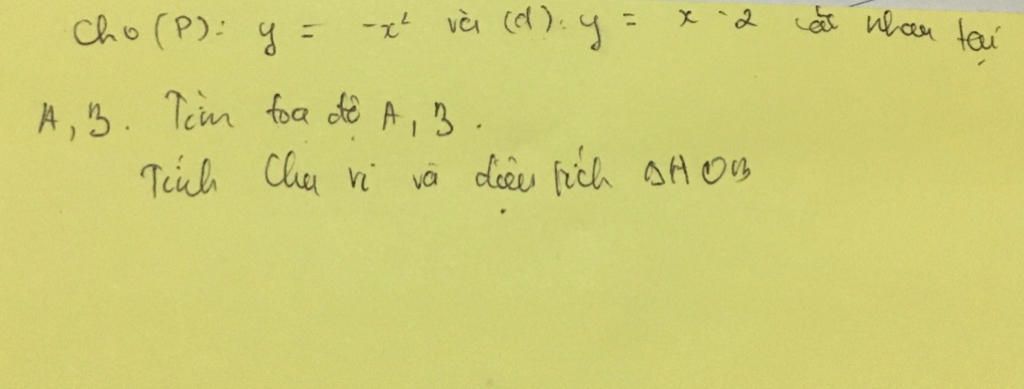 Cho (P): y = -x² và (d): y = x - 2 cắt nhau tại
A, B. Tìm tọa độ A, B.
Tính Chu vi và diện tích ΔAOB